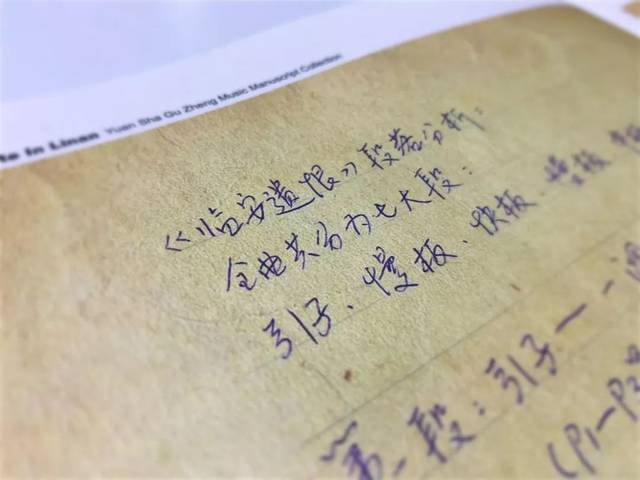 in Linan Yuan Sha Gu Zheng Music Manuscript Collection
《临安遗恨》段落分析：
全曲共分为七大段：
引子、慢板、快板、慢板
第一段：引子一
(P1-P3